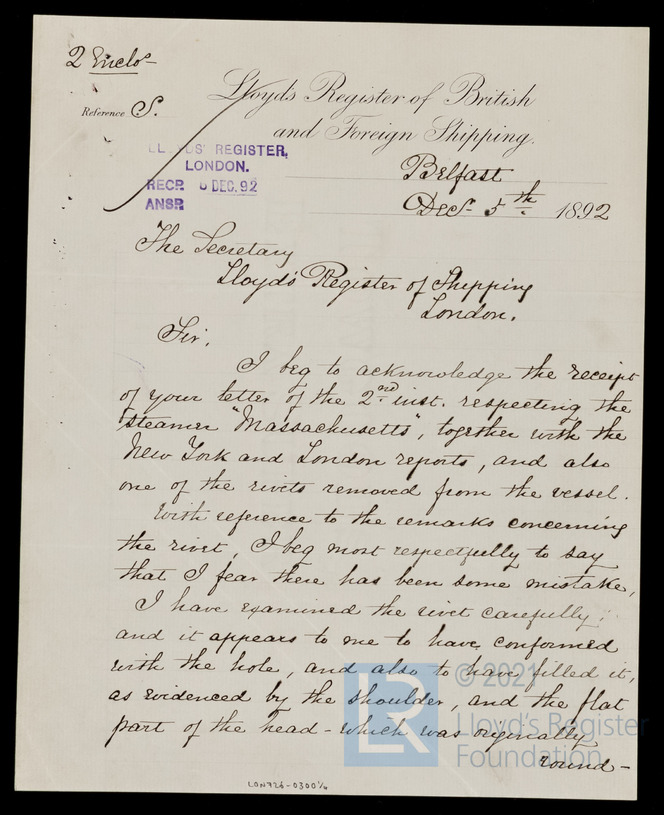 2 Enclos
Reference S.
Lloyds Register of British
and Foreign Shipping.
LL DS' REGISTER,
LONDON.
RECD. 6 DEC. 92
ANSD.
Belfast
Decr 5th 1892
The Secretary
Lloyd's Register of Shipping
London.
Sir,
I beg to acknowledge the receipt
of your letter of the 2nd inst. respecting the
steamer "Massachusetts", together with the
New York and London reports, and also
one of the rivets removed from the vessel.
With reference to the remarks concerning
the rivet, I beg most respectfully to say
that I fear there has been some mistake,
I have examined the rivet carefully,
and it appears to me to have conformed
with the hole, and also to have filled it,
as evidenced by the shoulder, and the flat
part of the head - which was originally
round -
© 2021
LR Lloyd's Register
Foundation
LON726-0300